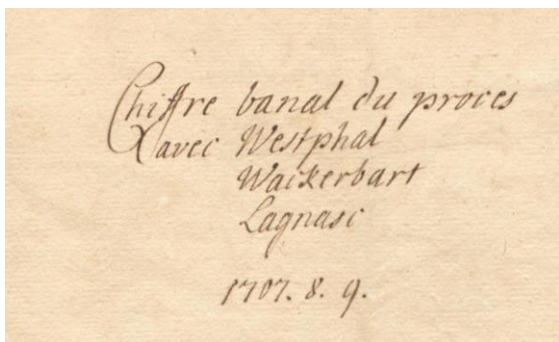 Chiffre banal du proces
avec Westphal
Wackerbart
Lagnasc
1707. 8. 9.